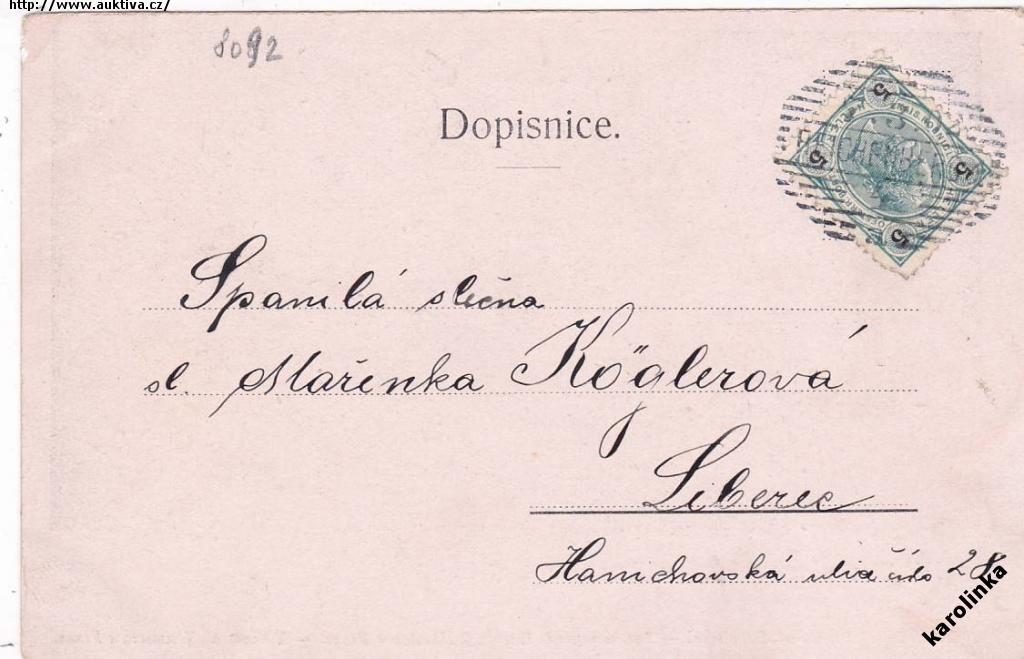 http://www.auktiva.cz/
8092
Dopisnice.
5
5
5
5
Spanilá slečna
sl. Mařenka Köglerová
Liberec
Hanichovská ulice číslo 28
karolinka